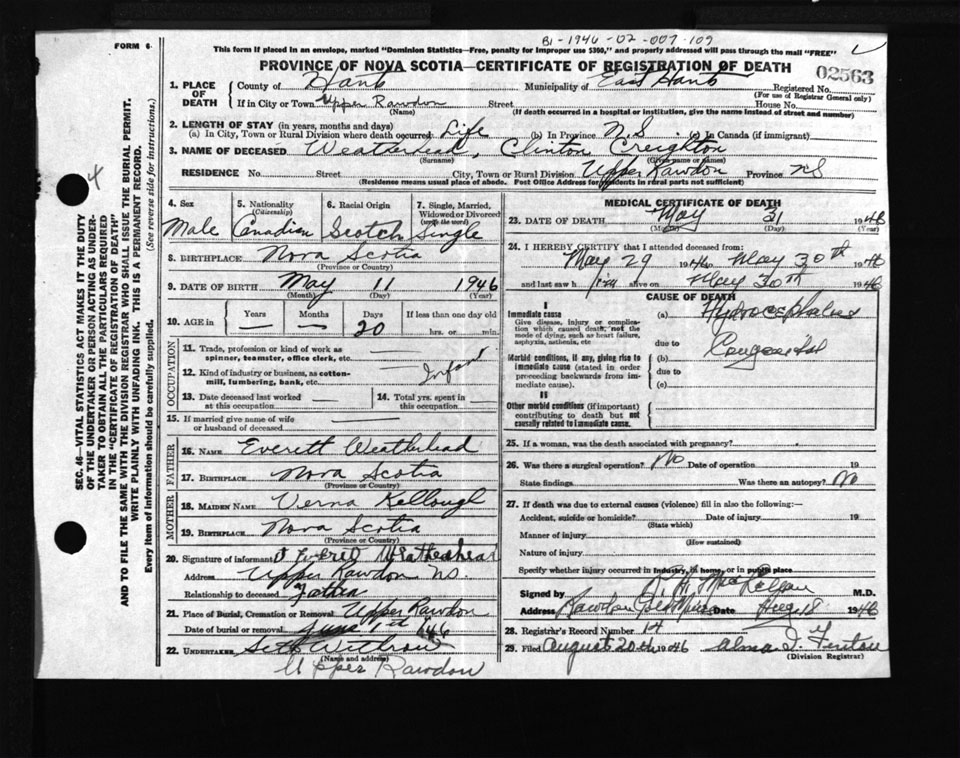 B1-1946-02-007-109
FORM 6
This form if placed in an envelope, marked "Dominion Statistics—Free, penalty for improper use $300," and properly addressed will pass through the mail "FREE"
PROVINCE OF NOVA SCOTIA—CERTIFICATE OF REGISTRATION OF DEATH
02563
1. PLACE OF DEATH
County of Hants Municipality of East Hants Registered No.
(For use of Registrar General only)
If in City or Town Upper Rawdon Street House No.
(Name) (If death occurred in a hospital or institution, give the name instead of street and number)
2. LENGTH OF STAY (in years, months and days)
(a) In City, Town or Rural Division where death occurred Life (b) In Province N.S. (c) In Canada (if immigrant)
3. NAME OF DECEASED Weatherhead, Clinton Creighton
(Surname) (Given name or names)
RESIDENCE No. Street City, Town or Rural Division Upper Rawdon Province NS
(Residence means usual place of abode. Post Office Address for residents in rural parts not sufficient)
4. Sex Male
5. Nationality (Citizenship) Canadian
6. Racial Origin Scotch
7. Single, Married, Widowed or Divorced (write the word) Single
8. BIRTHPLACE Nova Scotia
(Province or Country)
9. DATE OF BIRTH May 11 1946
(Month) (Day) (Year)
10. AGE in Years — Months — Days 20 If less than one day old hrs. or min.
OCCUPATION
11. Trade, profession or kind of work as spinner, teamster, office clerk, etc.
12. Kind of industry or business, as cotton-mill, lumbering, bank, etc. Infant
13. Date deceased last worked at this occupation
14. Total yrs. spent in this occupation
15. If married give name of wife or husband of deceased
FATHER
16. NAME Everett Weatherhead
17. BIRTHPLACE Nova Scotia
(Province or Country)
MOTHER
18. MAIDEN NAME Verna Kellough
19. BIRTHPLACE Nova Scotia
(Province or Country)
20. Signature of informant Weatherhead
Address Upper Rawdon NS.
Relationship to deceased Father
21. Place of Burial, Cremation or Removal Upper Rawdon
Date of burial or removal June 1st 1946
22. UNDERTAKER Seth Withrow
(Name and address)
Upper Rawdon
MEDICAL CERTIFICATE OF DEATH
23. DATE OF DEATH May 31 1946
(Month) (Day) (Year)
24. I HEREBY CERTIFY that I attended deceased from:
May 29 1946 to May 30th 1946
and last saw him alive on May 30th 1946
CAUSE OF DEATH
I
Immediate cause
Give disease, injury or complication which caused death, not the mode of dying, such as heart failure, asphyxia, asthenia, etc
(a) Hydrocephalus
due to
Morbid conditions, if any, giving rise to immediate cause (stated in order proceeding backwards from immediate cause).
(b) Congenital
due to
(c)
II
Other morbid conditions (if important) contributing to death but not causally related to immediate cause.
25. If a woman, was the death associated with pregnancy?
26. Was there a surgical operation? No Date of operation 19
State findings Was there an autopsy? No
27. If death was due to external causes (violence) fill in also the following:—
Accident, suicide or homicide? Date of injury 19
(State which)
Manner of injury
(How sustained)
Nature of injury
Specify whether injury occurred in industry, in home, or in public place
Signed by M.D.
Address Rawdon Gold Mines Date Aug 18 1946
28. Registrar's Record Number 14
29. Filed August 20th 1946 Alma I. Fenton
(Division Registrar)
4
SEC. 46—VITAL STATISTICS ACT MAKES IT THE DUTY
OF THE UNDERTAKER OR PERSON ACTING AS UNDERTAKER TO OBTAIN ALL THE PARTICULARS REQUIRED
IN THE "CERTIFICATE OF REGISTRATION OF DEATH"
AND TO FILE THE SAME WITH THE DIVISION REGISTRAR WHO SHALL ISSUE THE BURIAL PERMIT.
WRITE PLAINLY WITH UNFADING INK. THIS IS A PERMANENT RECORD.
Every item of information should be carefully supplied. (See reverse side for instructions.)